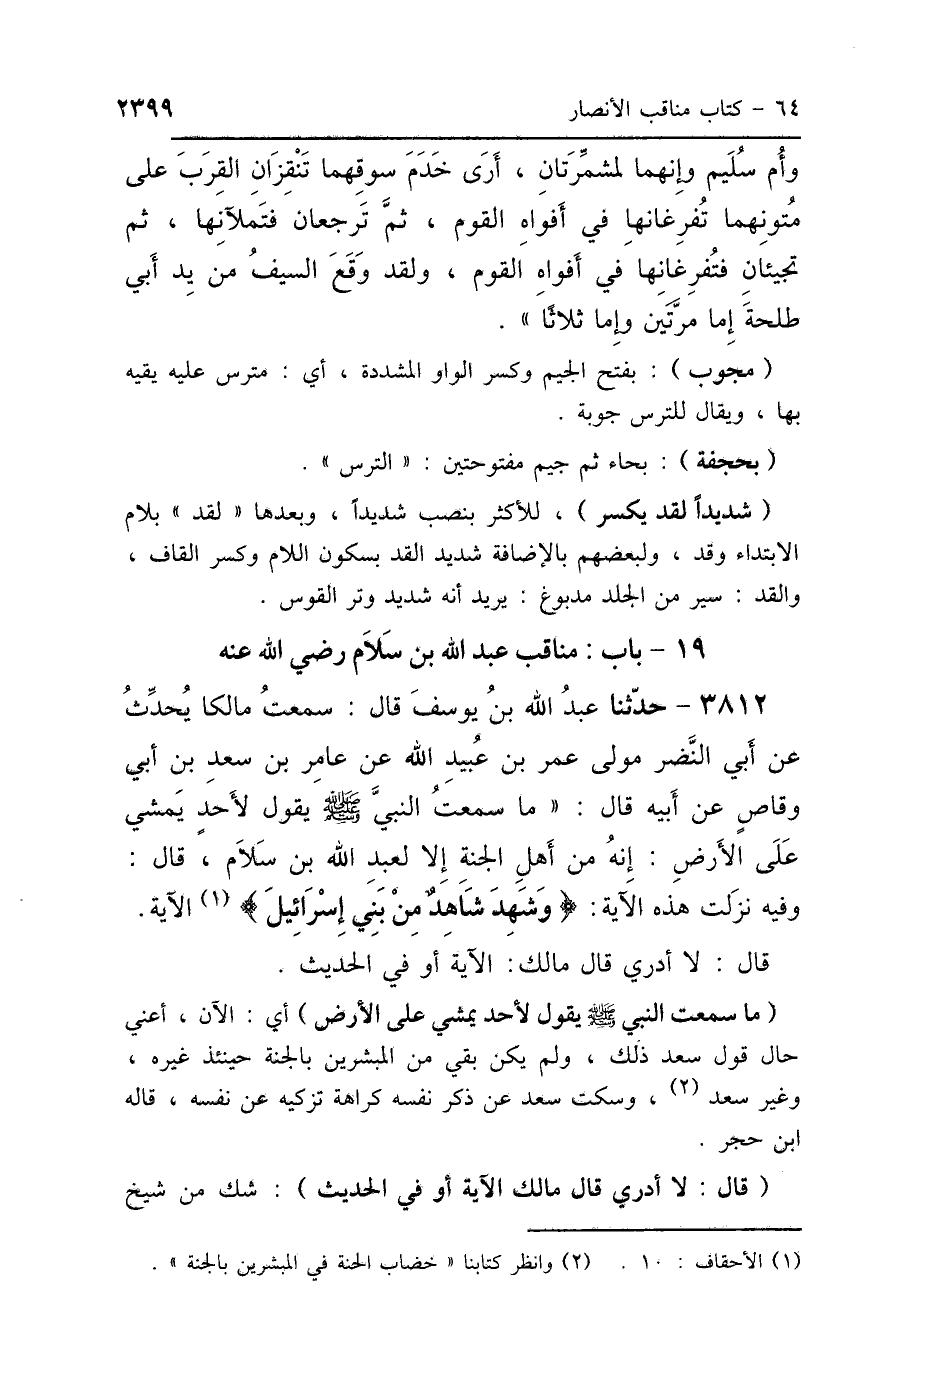 ٦٤ - كتاب مناقب الأنصار ٢٣٩٩
وأُم سُلَيم وإنهما لمشمِّرَتانِ ، أَرَى خَدَمَ سوقِهما تَنْقِزَانِ القِرَبَ على
مُتونِهما تُفرِغانِها في أفواهِ القوم ، ثمَّ تَرجعان فتَملآنِها ، ثم
تجيئانِ فتُفرِغانِها في أفواهِ القوم ، ولقد وَقَعَ السيفُ من يدِ أبي
طلحةَ إِما مرَّتَين وإِما ثلاثًا » .
( مجوب ) : بفتح الجيم وكسر الواو المشددة ، أي : مترس عليه يقيه
بها ، ويقال للترس جوبة .
( بحجفة ) : بحاء ثم جيم مفتوحتين : « الترس » .
( شديداً لقد يكسر ) ، للأكثر بنصب شديداً ، وبعدها « لقد » بلام
الابتداء وقد ، ولبعضهم بالإضافة شديد القد بسكون اللام وكسر القاف ،
والقد : سير من الجلد مدبوغ : يريد أنه شديد وتر القوس .
١٩ - باب : مناقب عبد الله بن سَلاَم رضي الله عنه
٣٨١٢ - حدّثنا عبدُ الله بنُ يوسفَ قال : سمعتُ مالكا يُحدِّثُ
عن أَبي النَّضر مولى عمر بن عُبيدِ الله عن عامرِ بن سعدِ بن أبي
وقاصٍ عن أَبيه قال : « ما سمعتُ النبيَّ ﷺ يقول لأَحدٍ يَمشي
عَلَى الأَرضِ : إنهُ من أَهلِ الجنةِ إلا لعبدِ الله بن سَلاَم ، قال :
وفيه نزلَت هذه الآية : ﴿ وَشَهِدَ شَاهِدٌ مِنْ بَنِي إِسْرَائِيلَ ﴾ (١) الآية .
قال : لا أدري قال مالك : الآية أو في الحديث .
( ما سمعت النبي ﷺ يقول لأحد يمشي على الأرض ) أي : الآن ، أعني
حال قول سعد ذلك ، ولم يكن بقي من المبشرين بالجنة حينئذ غيره ،
وغير سعد (٢) ، وسكت سعد عن ذكر نفسه كراهة تزكيه عن نفسه ، قاله
ابن حجر .
( قال : لا أدري قال مالك الآية أو في الحديث ) : شك من شيخ
(١) الأحقاف : ١٠ . (٢) وانظر كتابنا « خضاب الحنة في المبشرين بالجنة » .